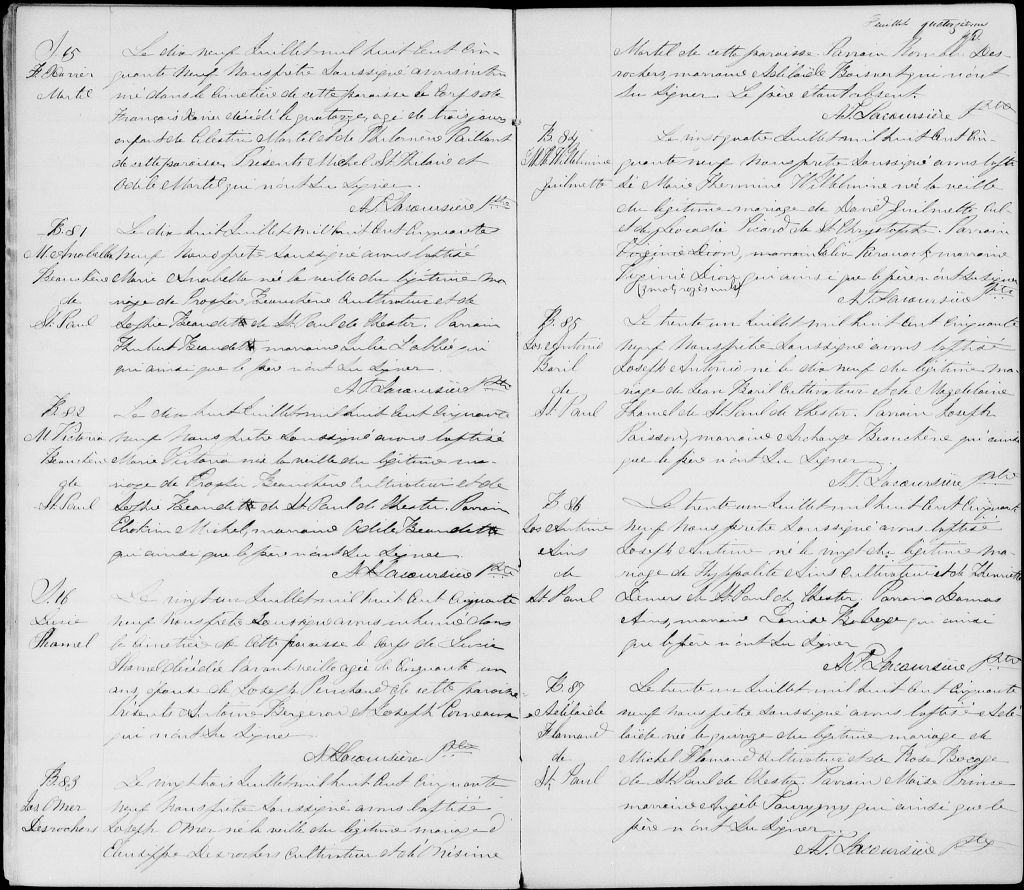 S. 15
F. Xavier
Martel
Le dix neuf Juillet mil huit cent cin-
quante neuf Nous prêtre soussigné avons inhu
mé dans le cimetière de cette paroisse le corps de
François Xavier décédé le quatorze, agé de trois jours
enfant de Célestin Martel et de Philomène Paillant
de cette paroisse. Présents Michel St Hilaire et
Odile Martel qui n'ont su signer.
N. P. Lacoursière Ptre
B. 81
M. Anabella
Beauchène
de
St. Paul
Le dix huit Juillet mil huit cent cinquante
neuf Nous prêtre soussigné avons baptisé
Marie Anabella née la veille du légitime ma
riage de Prosper Beauchène cultivateur et de
Sophie Beaudett de St. Paul de Chester. Parrain
Hubert Beaudett marraine Julie Labbé qui
qui ainsi que le père n'ont su signer.
N. P. Lacoursière Ptre
B. 82
M. Victoria
Beauchène
de
St. Paul
Le dix huit Juillet mil huit cent cinquante
neuf Nous prêtre soussigné avons baptisé
Marie Victoria née la veille du légitime ma-
riage de Prosper Beauchène cultivateur et de
Sophie Beaudett de St. Paul de Chester. Parrain
Michel, marraine Odile Beaudett
qui ainsi que le père n'ont su signer.
N. P. Lacoursière Ptre
S. 16
Lucie
Hamel
Le vingt un Juillet mil huit cent cinquante
neuf Nous prêtre soussigné avons inhumé dans
le cimetière de cette paroisse le corps de Lucie
Hamel décédée l'avant veille agée de cinquante un
ans, épouse de Joseph de cette paroisse
Présents Antoine Bergeron et Joseph Corneau
qui n'ont su signer
N. P. Lacoursière Ptre
B. 83
Jos. Omer
Desrochers
Le vingt trois Juillet mil huit cent cinquante
neuf Nous prêtre soussigné avons baptisé
Joseph Omer né la veille du légitime mariage d'
Desrochers cultivateur et d'Onésime
Feuillet quatorzième
Martel de cette paroisse. Parrain Des-
rochers, marraine Adélaïde Boisvert qui n'ont
su signer. Le père étant absent.
N. P. Lacoursière Ptre
B. 84
M. H. Wilhelmine
Guilmette
Le vingt quatre Juillet mil huit cent cin-
quante neuf Nous prêtre soussigné avons bapti
sé Marie Hermine Wilhelmine née la veille
du légitime mariage de David Guilmette cul-
et de Léocadie Picard de St Chrystophe. Parrain
marraine
Virginie Dion qui ainsi que le père n'ont su signer
N. P. Lacoursière Ptre
B. 85
Jos. Antonio
Baril
de
St. Paul
Le trente un Juillet mil huit cent cinquante
neuf Nous prêtre soussigné avons baptisé
Joseph Antonio né le dix neuf du légitime ma-
riage de Jean Baril cultivateur et de Magdelaine
Hamel de St. Paul de Chester. Parrain Joseph
Poisson, marraine Archange Beauchène qui ainsi
que le père n'ont su signer.
N. P. Lacoursière Ptre
B. 86
Jos. Antime
Ains
de
St. Paul
Le trente un Juillet mil huit cent cinquante
neuf Nous prêtre soussigné avons baptisé
Joseph Antime né le vingt du légitime ma-
riage de Hyppolite Ains cultivateur et de Henriette
Demers de St Paul de Chester. Parrain Damas
Ains, marraine Louise qui ainsi
que le père n'ont su signer
N. P. Lacoursière Ptre
B. 87
Adélaïde
Flamand
de
St. Paul
Le trente un Juillet mil huit cent cinquante
neuf Nous prêtre soussigné avons baptisé Adé
laïde née le quinze du légitime mariage de
Michel Flamand cultivateur et de Rose Bocage
de St. Paul de Chester, Parrain Moïse Prince
marraine Angèle qui ainsi que le
père n'ont su signer.
N. P. Lacoursière Ptre